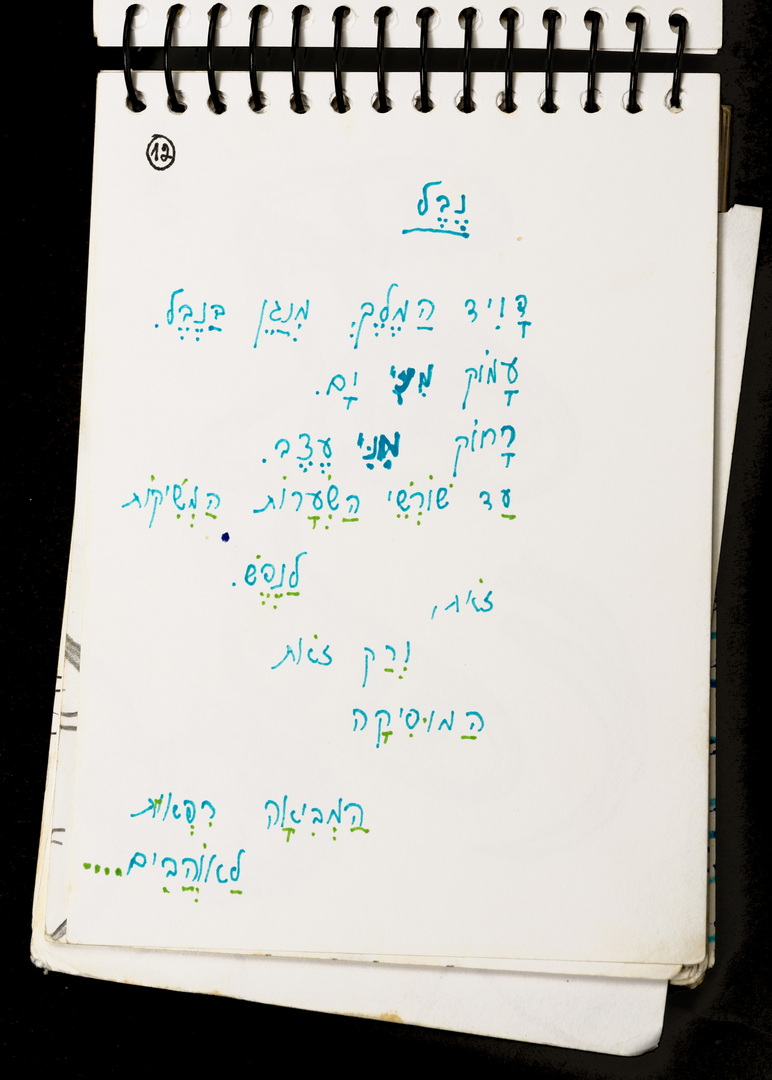 12
נֵבֶל
דָּוִיד הַמֶּלֶךְ, מְנַגֵּן בַּנֵּבֶל.
עָמוֹק מִנִּי יָם.
רָחוֹק מִנִּי עֶצֶב.
עַד שׁוֹרְשֵׁי הַשְּׂעָרוֹת הַמַּשִּׁיקוֹת
לַנֶּפֶשׁ.
זֹאת,
וְרַק זֹאת
הַמוּסִיקָה
הַמְּבִיאָה רִפְאוּת
לָאוֹהֲבִים....